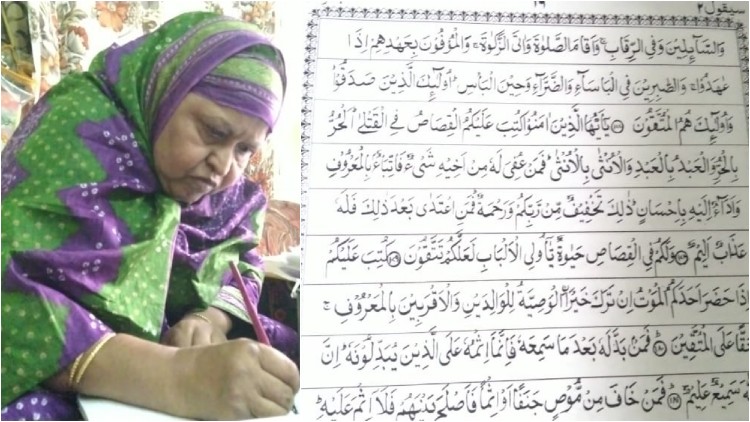 سيقول ٢
١٦
وَالسَّآئِلِيْنَ وَفِي الرِّقَابِ ۚ وَاَقَامَ الصَّلٰوةَ وَاٰتَى الزَّكٰوةَ ۚ وَالْمُوْفُوْنَ بِعَهْدِهِمْ اِذَا
عٰهَدُوْا ۚ وَالصّٰبِرِيْنَ فِي الْبَاْسَآءِ وَالضَّرَّآءِ وَحِيْنَ الْبَاْسِ ؕ اُولٰٓئِكَ الَّذِيْنَ صَدَقُوْا
وَاُولٰٓئِكَ هُمُ الْمُتَّقُوْنَ يٰٓاَيُّهَا الَّذِيْنَ اٰمَنُوْا كُتِبَ عَلَيْكُمُ الْقِصَاصُ فِي الْقَتْلٰى ؕ اَلْحُرُّ
بِالْحُرِّ وَالْعَبْدُ بِالْعَبْدِ وَالْاُنْثٰى بِالْاُنْثٰى ؕ فَمَنْ عُفِيَ لَهٗ مِنْ اَخِيْهِ شَيْءٌ فَاتِّبَاعٌ بِالْمَعْرُوْفِ
وَاَدَآءٌ اِلَيْهِ بِاِحْسَانٍ ؕ ذٰلِكَ تَخْفِيْفٌ مِّنْ رَّبِّكُمْ وَرَحْمَةٌ ؕ فَمَنِ اعْتَدٰى بَعْدَ ذٰلِكَ فَلَهٗ
عَذَابٌ اَلِيْمٌ وَلَكُمْ فِي الْقِصَاصِ حَيٰوةٌ يّٰٓاُولِي الْاَلْبَابِ لَعَلَّكُمْ تَتَّقُوْنَ كُتِبَ عَلَيْكُمْ
اِذَا حَضَرَ اَحَدَكُمُ الْمَوْتُ اِنْ تَرَكَ خَيْرَا ۖ الْوَصِيَّةُ لِلْوَالِدَيْنِ وَالْاَقْرَبِيْنَ بِالْمَعْرُوْفِ ۚ
حَقًّا عَلَى الْمُتَّقِيْنَ فَمَنْ بَدَّلَهٗ بَعْدَ مَا سَمِعَهٗ فَاِنَّمَآ اِثْمُهٗ عَلَى الَّذِيْنَ يُبَدِّلُوْنَهٗ ؕ اِنَّ
سَمِيْعٌ عَلِيْمٌ فَمَنْ خَافَ مِنْ مُّوْصٍ جَنَفًا اَوْ اِثْمًا فَاَصْلَحَ بَيْنَهُمْ فَلَآ اِثْمَ عَلَيْهِ ؕ